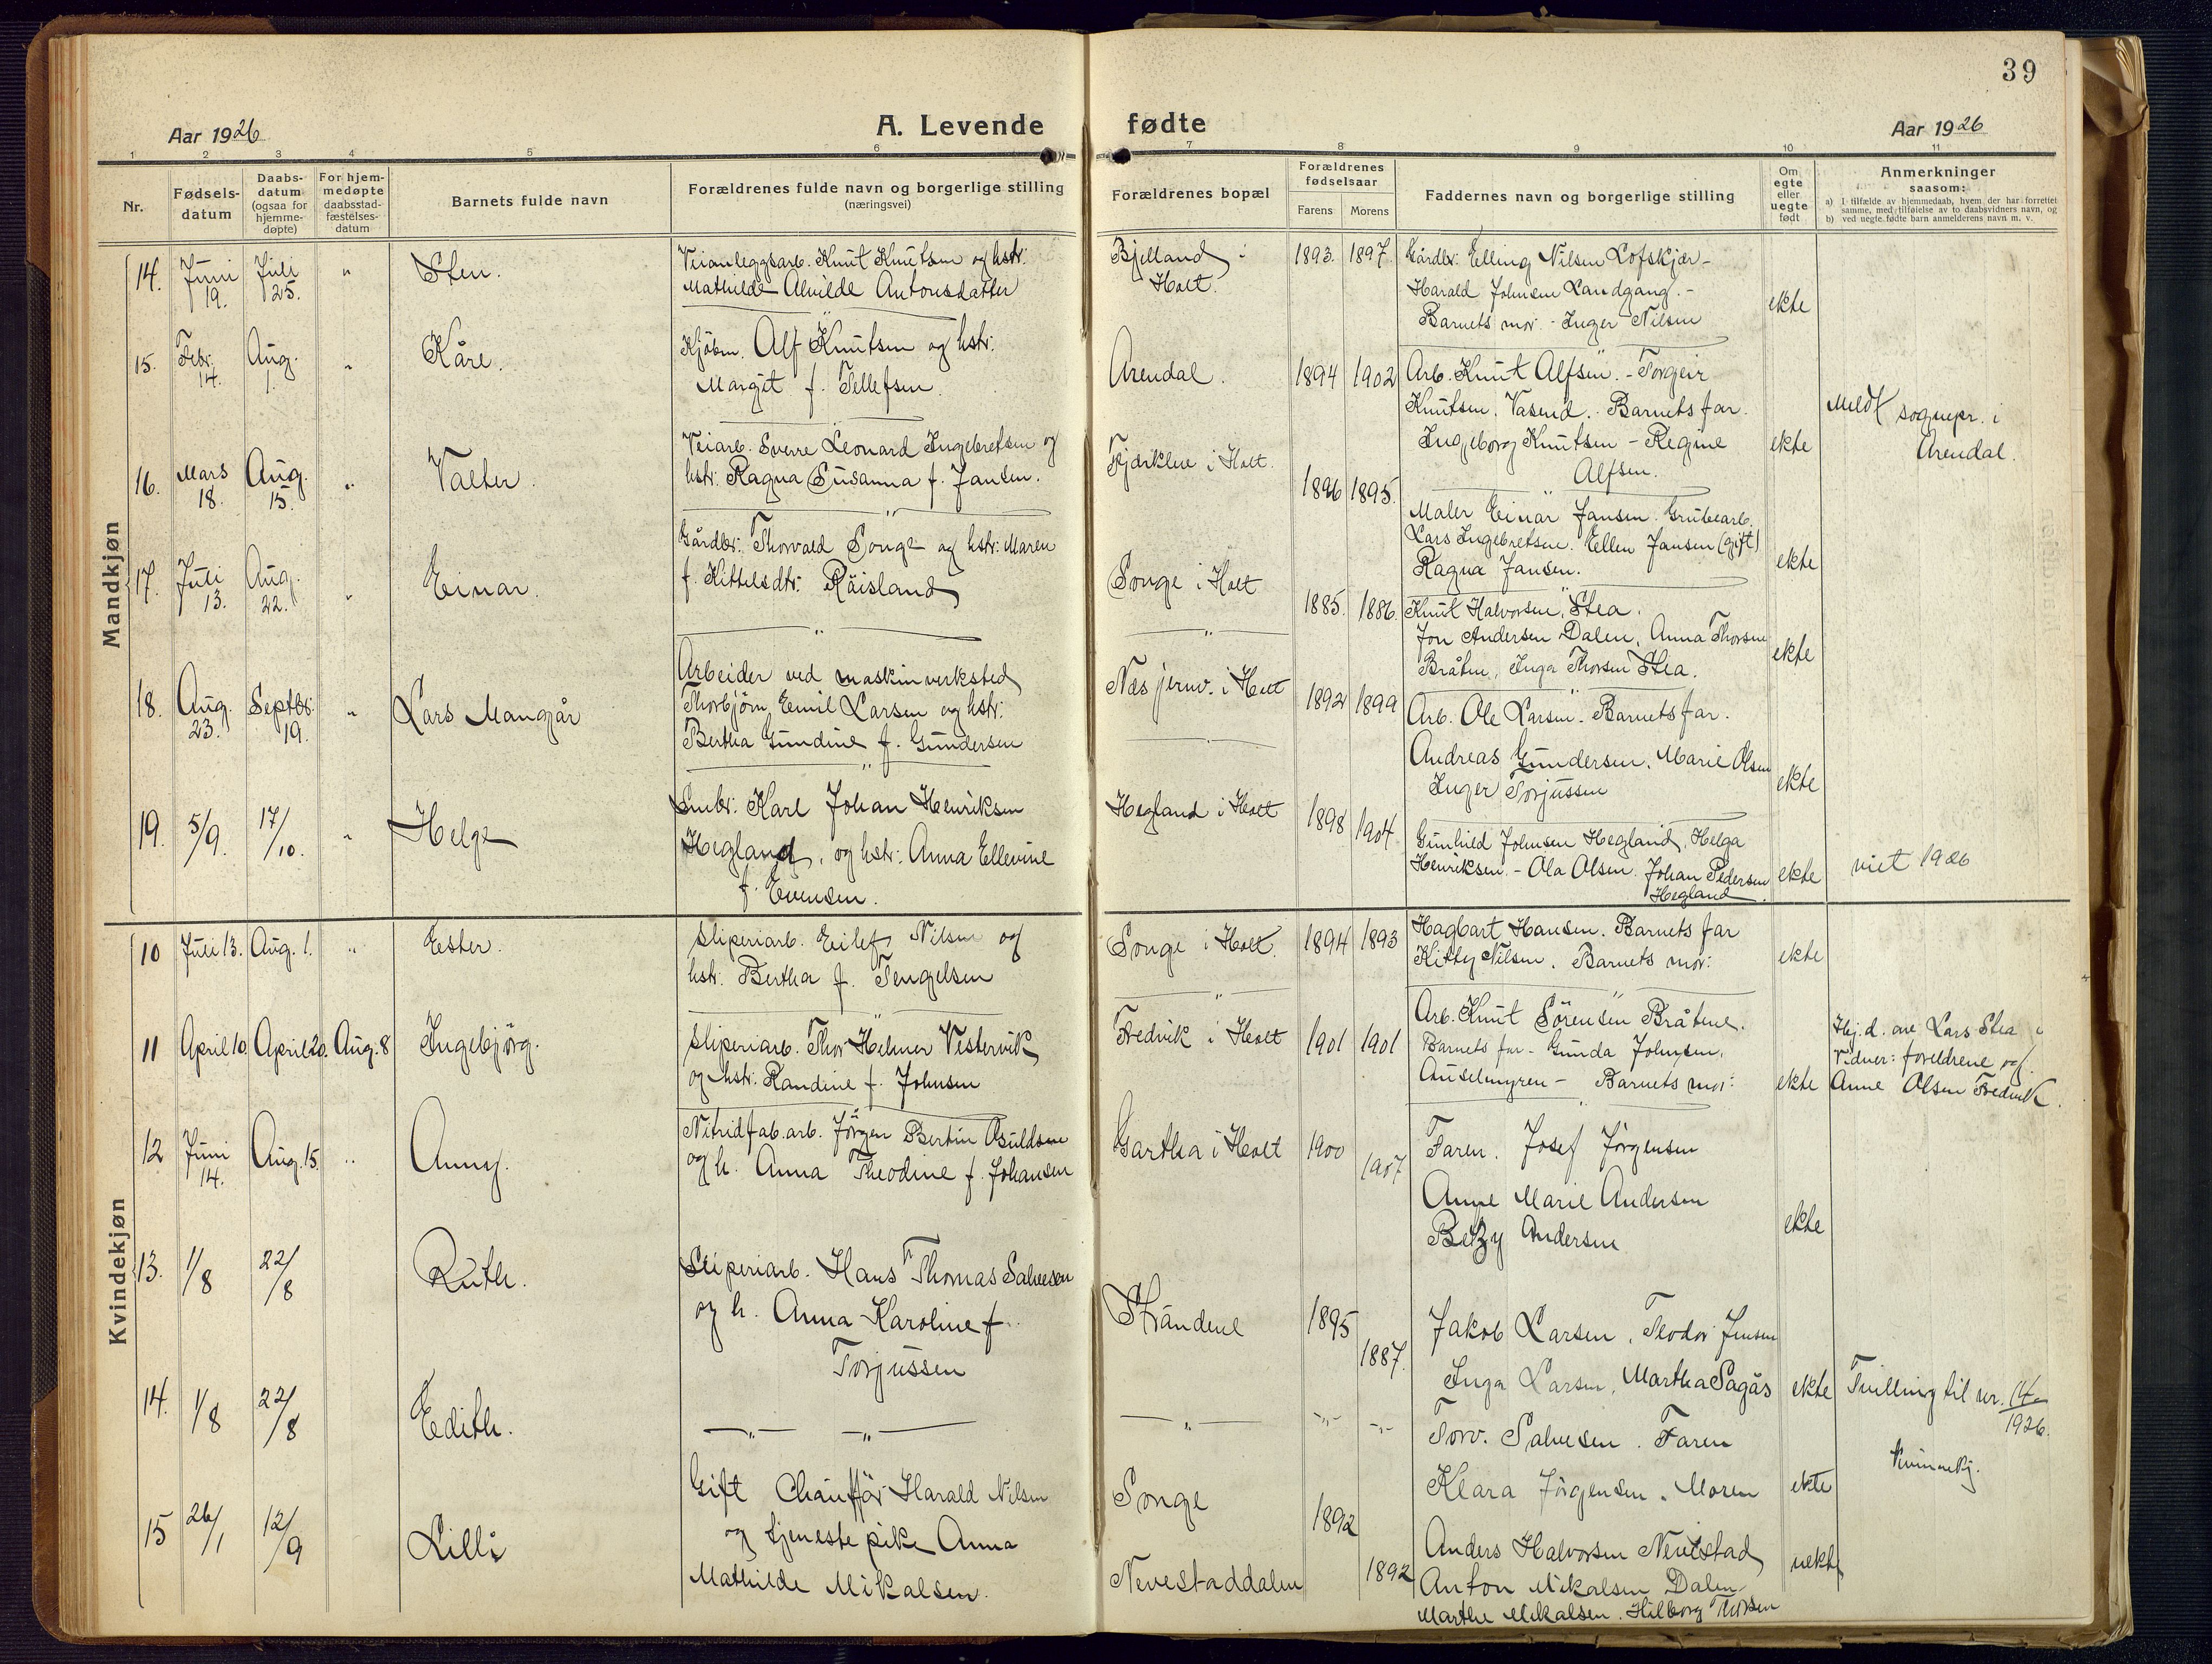 39
Aar 1926
A. Levende fødte
Aar 1926
1 2 3 4 5 6 7 8 9 10 11
Nr.
Fødsels-
datum
Daabs-
datum
(ogsaa for
hjemme-
døpte)
For hjem-
medøpte
daabsstad-
fæstelses-
datum
Barnets fulde navn
Forældrenes fulde navn og borgerlige stilling
(næringsvei)
Forældrenes bopæl
Forældrenes
fødselsaar
Farens Morens
Faddernes navn og borgerlige stilling
Om
egte
eller
uegte
født
Anmerkninger
saasom:
a) I tilfælde av hjemmedaab, hvem der har forrettet
samme, med tilføielse av to daabsvidners navn, og
b) ved uegte fødte barn anmelderens navn m. v.
Mandkjøn
14. Juni 19. Juli 25. " Sten.
Veianleggsarb. Knut Knutsen og hstr:
Mathilde Alvilde Antonsdatter
Bjelland i
Holt.
1893. 1897.
Gårdbr: Elling Nilsen Lofskjær -
Harald Johnsen Landgang. -
Barnets mor. - Inger Nilsen
ekte
15. Febr. 14. Aug. 1. " Kåre.
Kjöbm. Alf Knutsen og hstr:
Margit f. Tellefsen.
Arendal.
1894 1902
Arb. Knut Alfsen. - Torgeir
Knutsen, Vasend. - Barnets far.
Ingeborg Knutsen - Regine
Alfsen.
ekte
Meldt sognepr. i
Arendal.
16. Mars 18. Aug. 15. " Valter.
Veiarb. Sverre Leonard Ingebretsen og
hstr: Ragna Susanna f. Jansen.
Fjærkleiv i Holt.
1896 1895.
Maler Einar Jansen. Grubearb.
Lars Ingebretsen. Ellen Jansen (gift)
Ragna Jansen.
ekte
17. Juli 13. Aug. 22. " Einar.
Gårdbr: Thorvald Songe og hstr: Maren
f. Kittelsdtr: Räisland
Songe i Holt
1885. 1886.
Knut Halvorsen, Stea.
Jon Andersen Dalen, Anna Thorsen
Bråten, Inga Thorsen Stea.
ekte
18. Aug. 23. Septbr. 19. " Lars Mangjår
Arbeider ved maskinverksted
Thorbjörn Emil Larsen og hstr:
Bertha Gundine f. Gundersen
Næs jernv. i Holt
1892 1899
Arb. Ole Larsen. Barnets far.
Andreas Gundersen, Marie Olsen
Inger Torjussen
ekte
19. 5/9. 17/10. " Helge
Smbr: Karl Johan Henriksen
Hegland, og hstr: Anna Ellevine
f. Evensen.
Hegland i Holt
1898 1904
Gunhild Johnsen Hegland, Helga
Henriksen. - Ola Olsen. Johan Pedersen
Hegland.
ekte
viet 1926
Kvindekjøn
10 Juli 13. Aug. 1. " Ester.
Sliperiarb. Eilef Nilsen og
hstr. Bertha f. Tengelsen
Songe i Holt.
1894 1893
Hagbart Hansen. Barnets far
Kitty Nilsen. Barnets mor:
ekte
11 April 10. April 20. Aug. 8 Ingebjörg.
Sliperiarb. Thor Helmer Vestervik
og hstr: Randine f. Johnsen
Fredvik i Holt
1901 1901
Arb. Knut Sörensen Bråtene.
Barnets far - Gunda Johnsen,
Anselmyren - Barnets mor:
ekte
Hj.d. av Lars Stea
vidner: foreldrene og
Anne Olsen Fredvik.
12 Juni 14. Aug. 15. " Anny.
Nitridfab.arb. Jörgen Bertin Osuldsen
og h. Anna Theodine f. Johansen
Gartha i Holt
1900 1907
Faren. Josef Jörgensen
Anne Marie Andersen
Betzy Andersen
ekte
13. 1/8 22/8 Ruth.
Sliperiarb. Hans Thomas Salvesen
og h. Anna Karoline f.
Torjussen
Strandene
1895 1887.
Jakob Larsen, Teodor Jensen
Inga Larsen, Martha Sagås
ekte
Tvilling til nr. 14/1926.
Kvinnekj.
14. 1/8 22/8 Edith.
—"— —"—
—"— -"- -"-
Torv. Salvesen. Faren
Klara Jörgensen. Moren
ekte
15 26/1 12/9 Lilli
Gift Chauffør Harald Nilsen
og tjenestepike Anna
Mathilde Mikalsen.
Songe
Nevestaddalen
1892
1892
Anders Halvorsen Nevestad
Anton Mikalsen Dalen
Marthe Mikalsen. Hilborg Thorsen
uekte